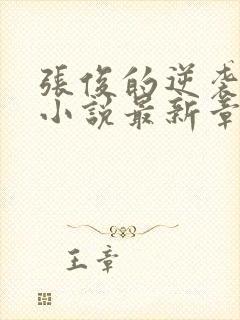 張俊的逆襲
小説最新章
王章